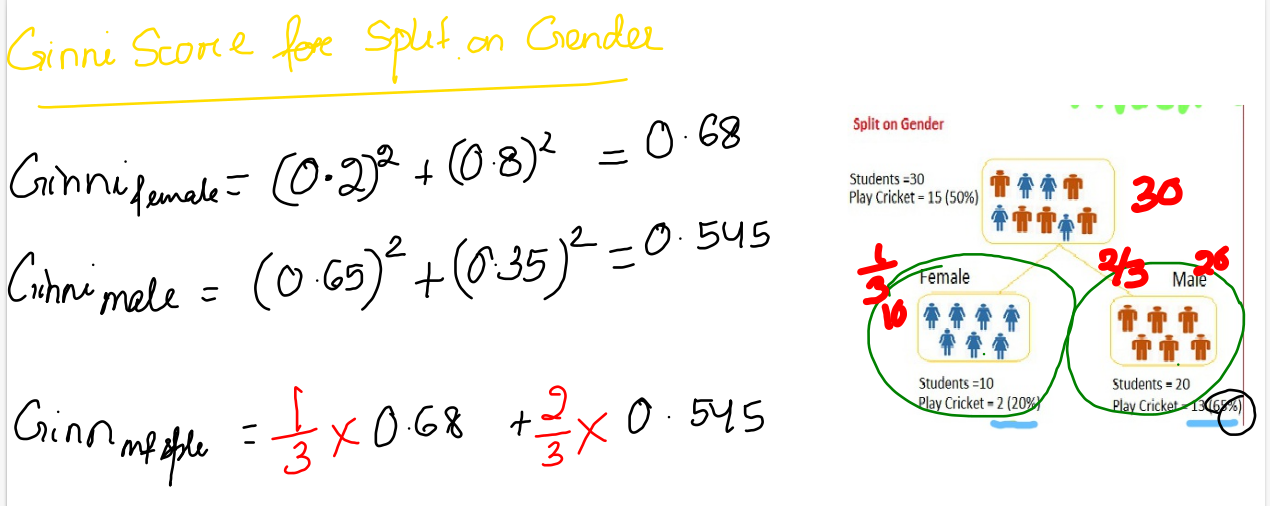 Ginni Score for Split on Gender
Ginni female = (0.2)² + (0.8)² = 0.68
Ginni male = (0.65)² + (0.35)² = 0.545
Ginn = 1/3 × 0.68 + 2/3 × 0.545
Split on Gender
Students =30
Play Cricket = 15 (50%)
30
1/3
10
Female
2/3
Male
Students =10
Play Cricket = 2 (20%)
Students = 20
Play Cricket = 13 (65%)